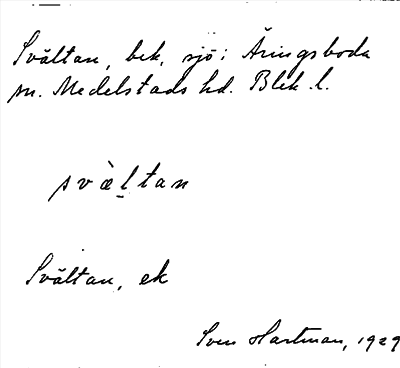 Svältan, bek, sjö i Äringsboda
sn. Medelstads hd. Blek. l.
svæ̀ḻtan
Svältan, ek
Sven Hartman, 1929